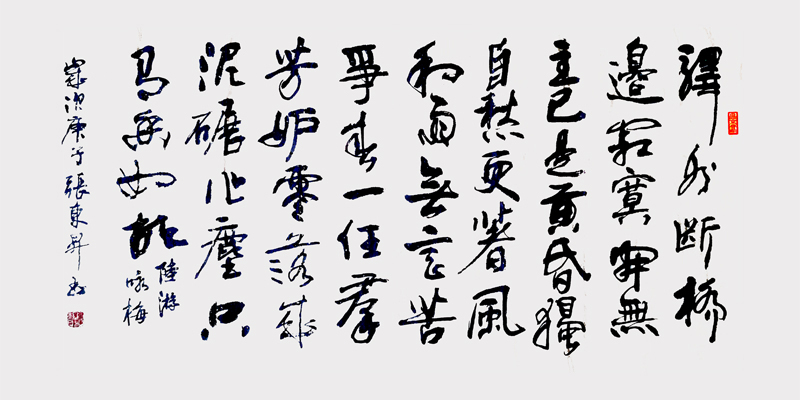 驛外断橋
邊寂寞開無
主已是黄昏獨
自愁更著風
和雨無意苦
爭春一任羣
芳妒零落成
泥碾作塵只
有香如故
陸游
咏梅
歲次庚子張東昇書